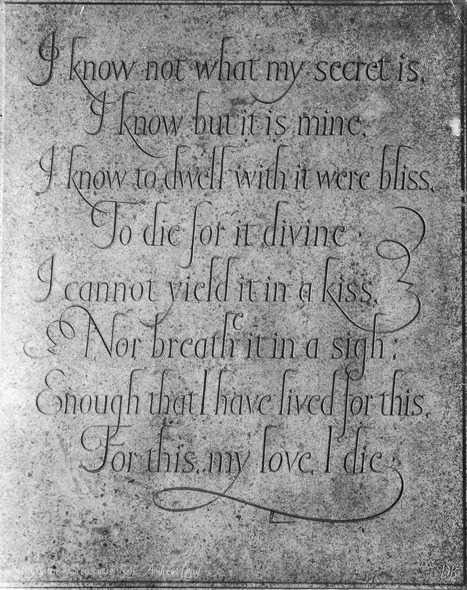 I know not what my secret is,
I know but it is mine,
I know to dwell with it were bliss,
To die for it divine
I cannot yield it in a kiss,
Nor breathe it in a sigh;
Enough that I have lived for this,
For this, my love, I die
Andrew Lang